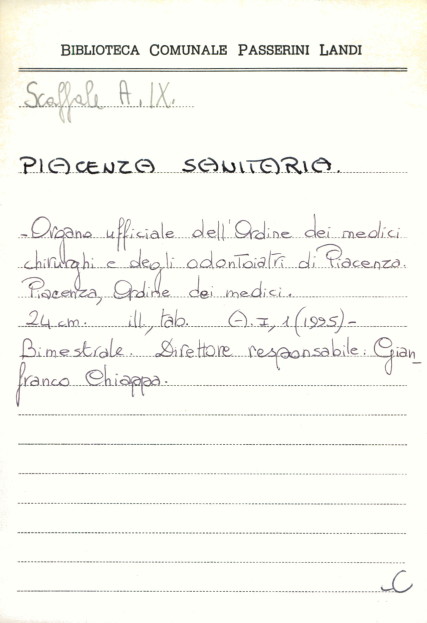 BIBLIOTECA COMUNALE PASSERINI LANDI
Scaffale A. IX.
PIACENZA SANITARIA.
-Organo ufficiale dell'Ordine dei medici
chirurghi e degli odontoiatri di Piacenza.
Piacenza, Ordine dei medici.
24 cm. ill., tab. A. I, 1 (1995)-
Bimestrale. Direttore responsabile: Gian_
franco Chiappa.
C